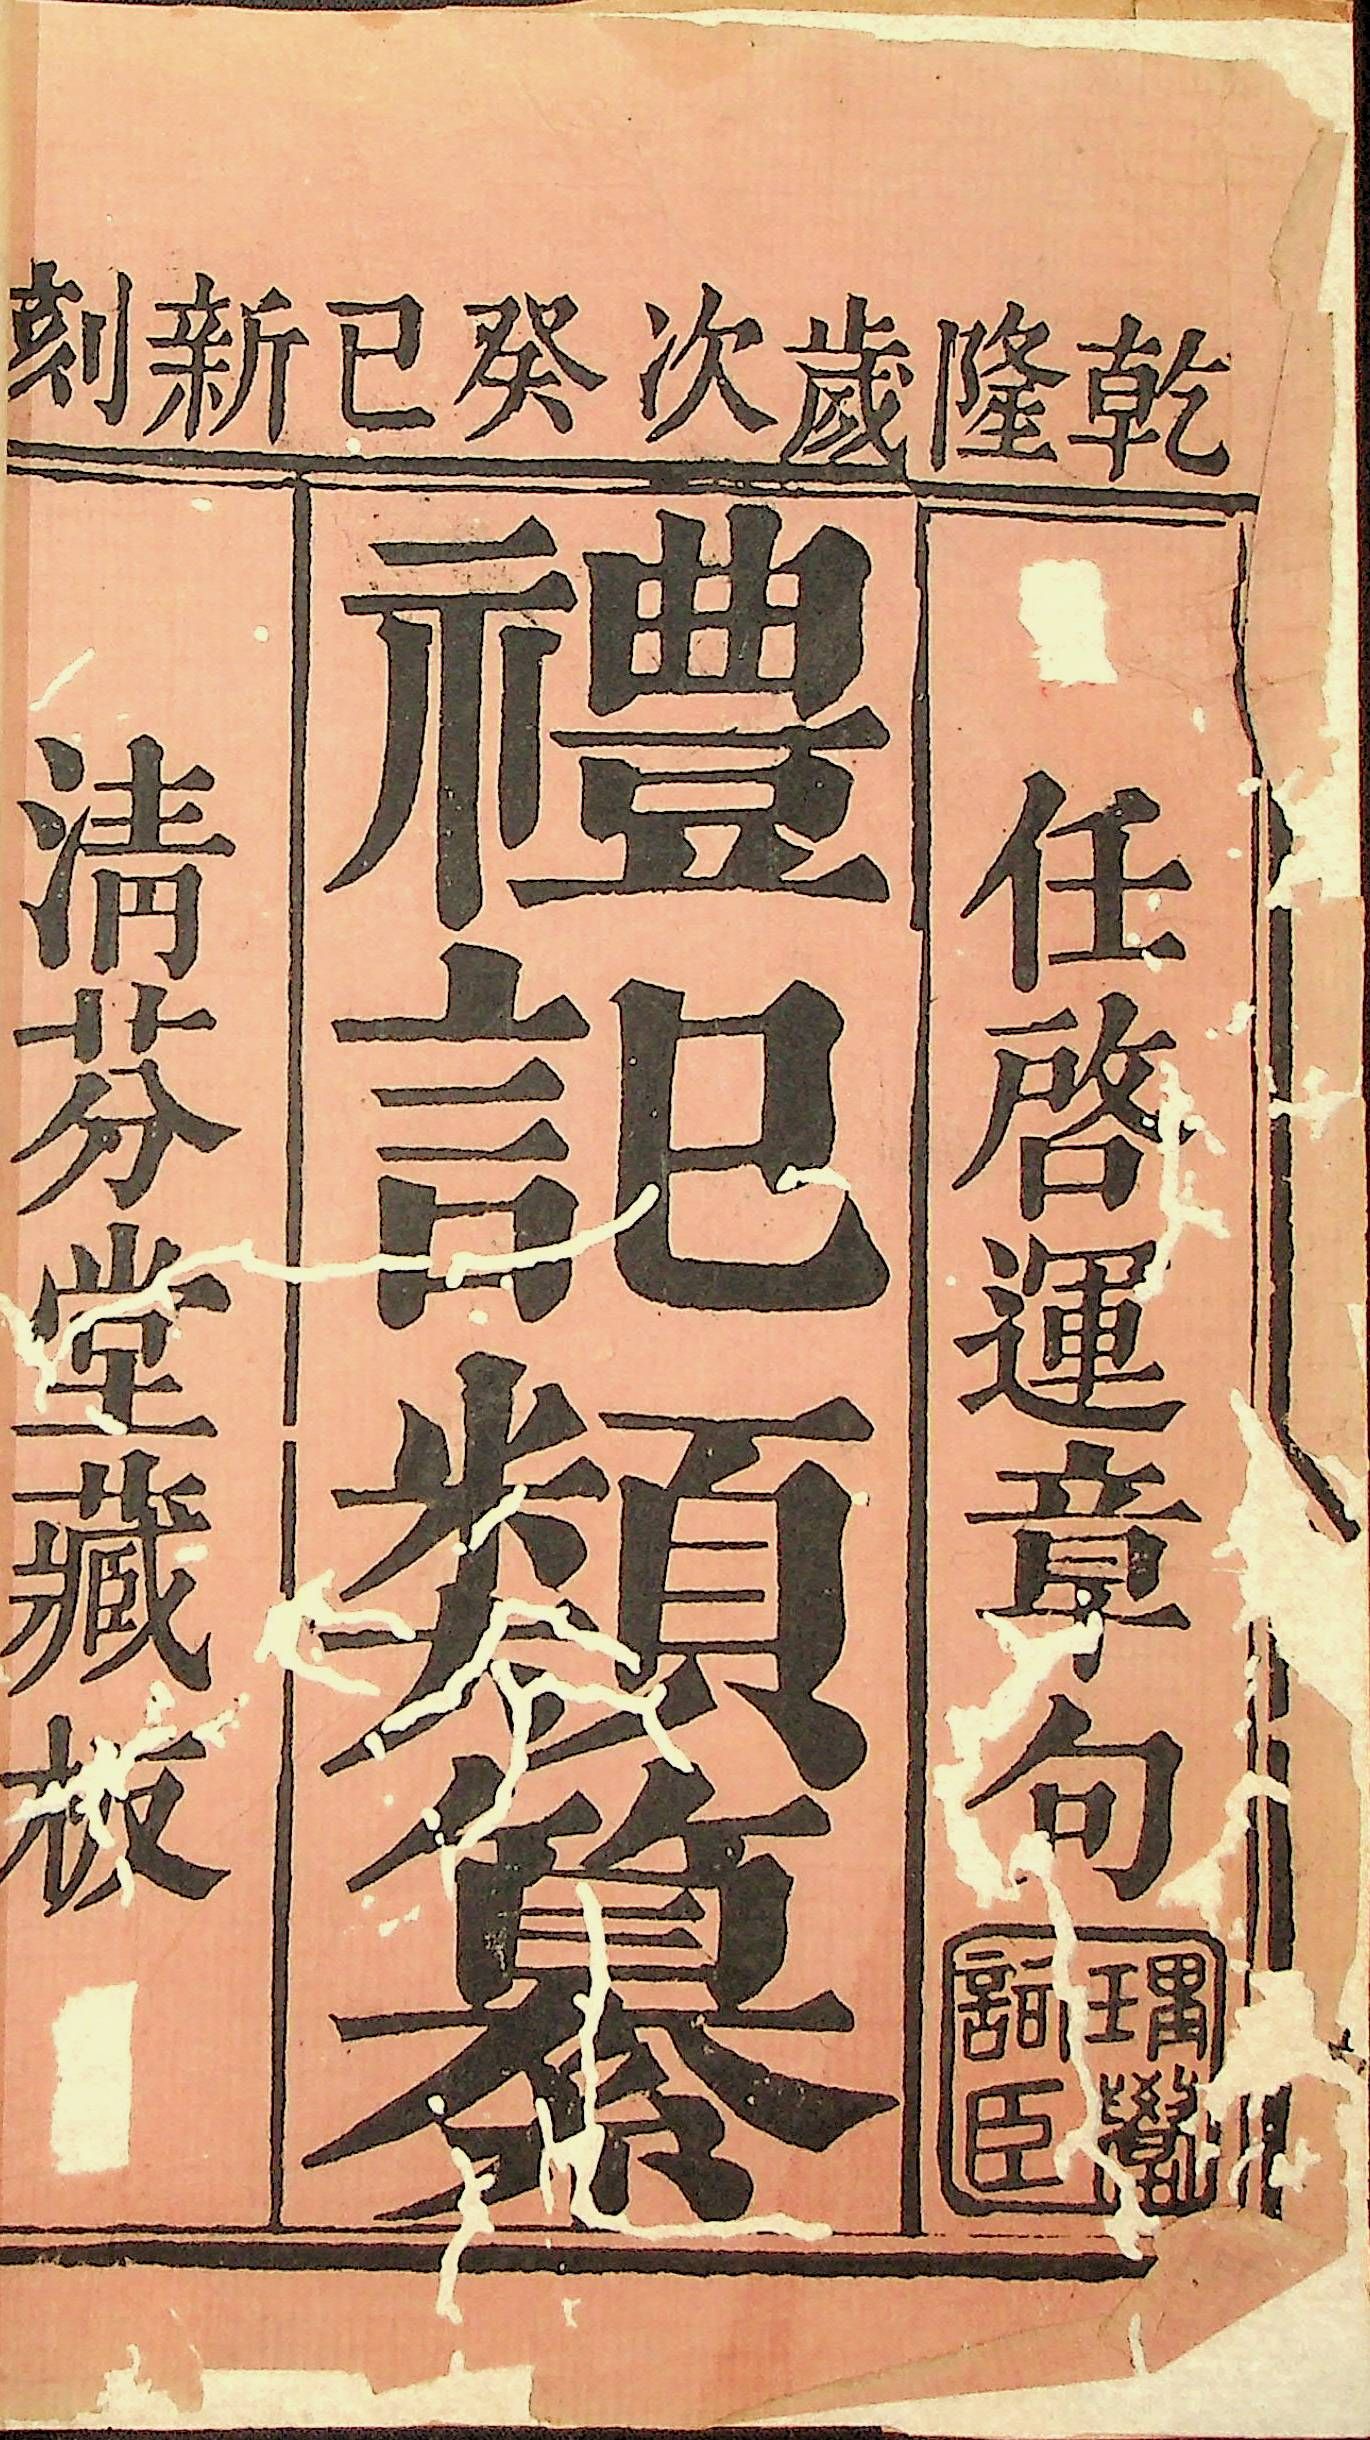 乾隆歲次癸巳新刻
任啓運章句
禮記類纂
清芬堂藏板